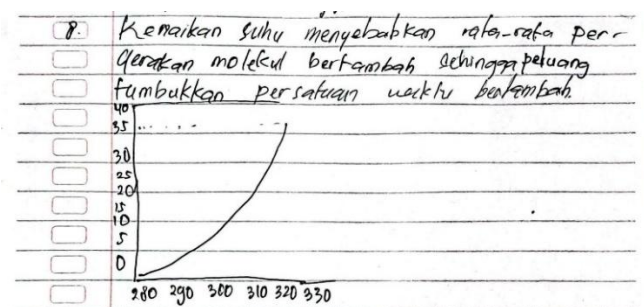 8. Kenaikan suhu menyebabkan rata-rata per-
gerakan molekul bertambah sehingga peluang
tumbukkan persatuan waktu bertambah.
40
35
30
25
20
15
10
5
0
280 290 300 310 320 330